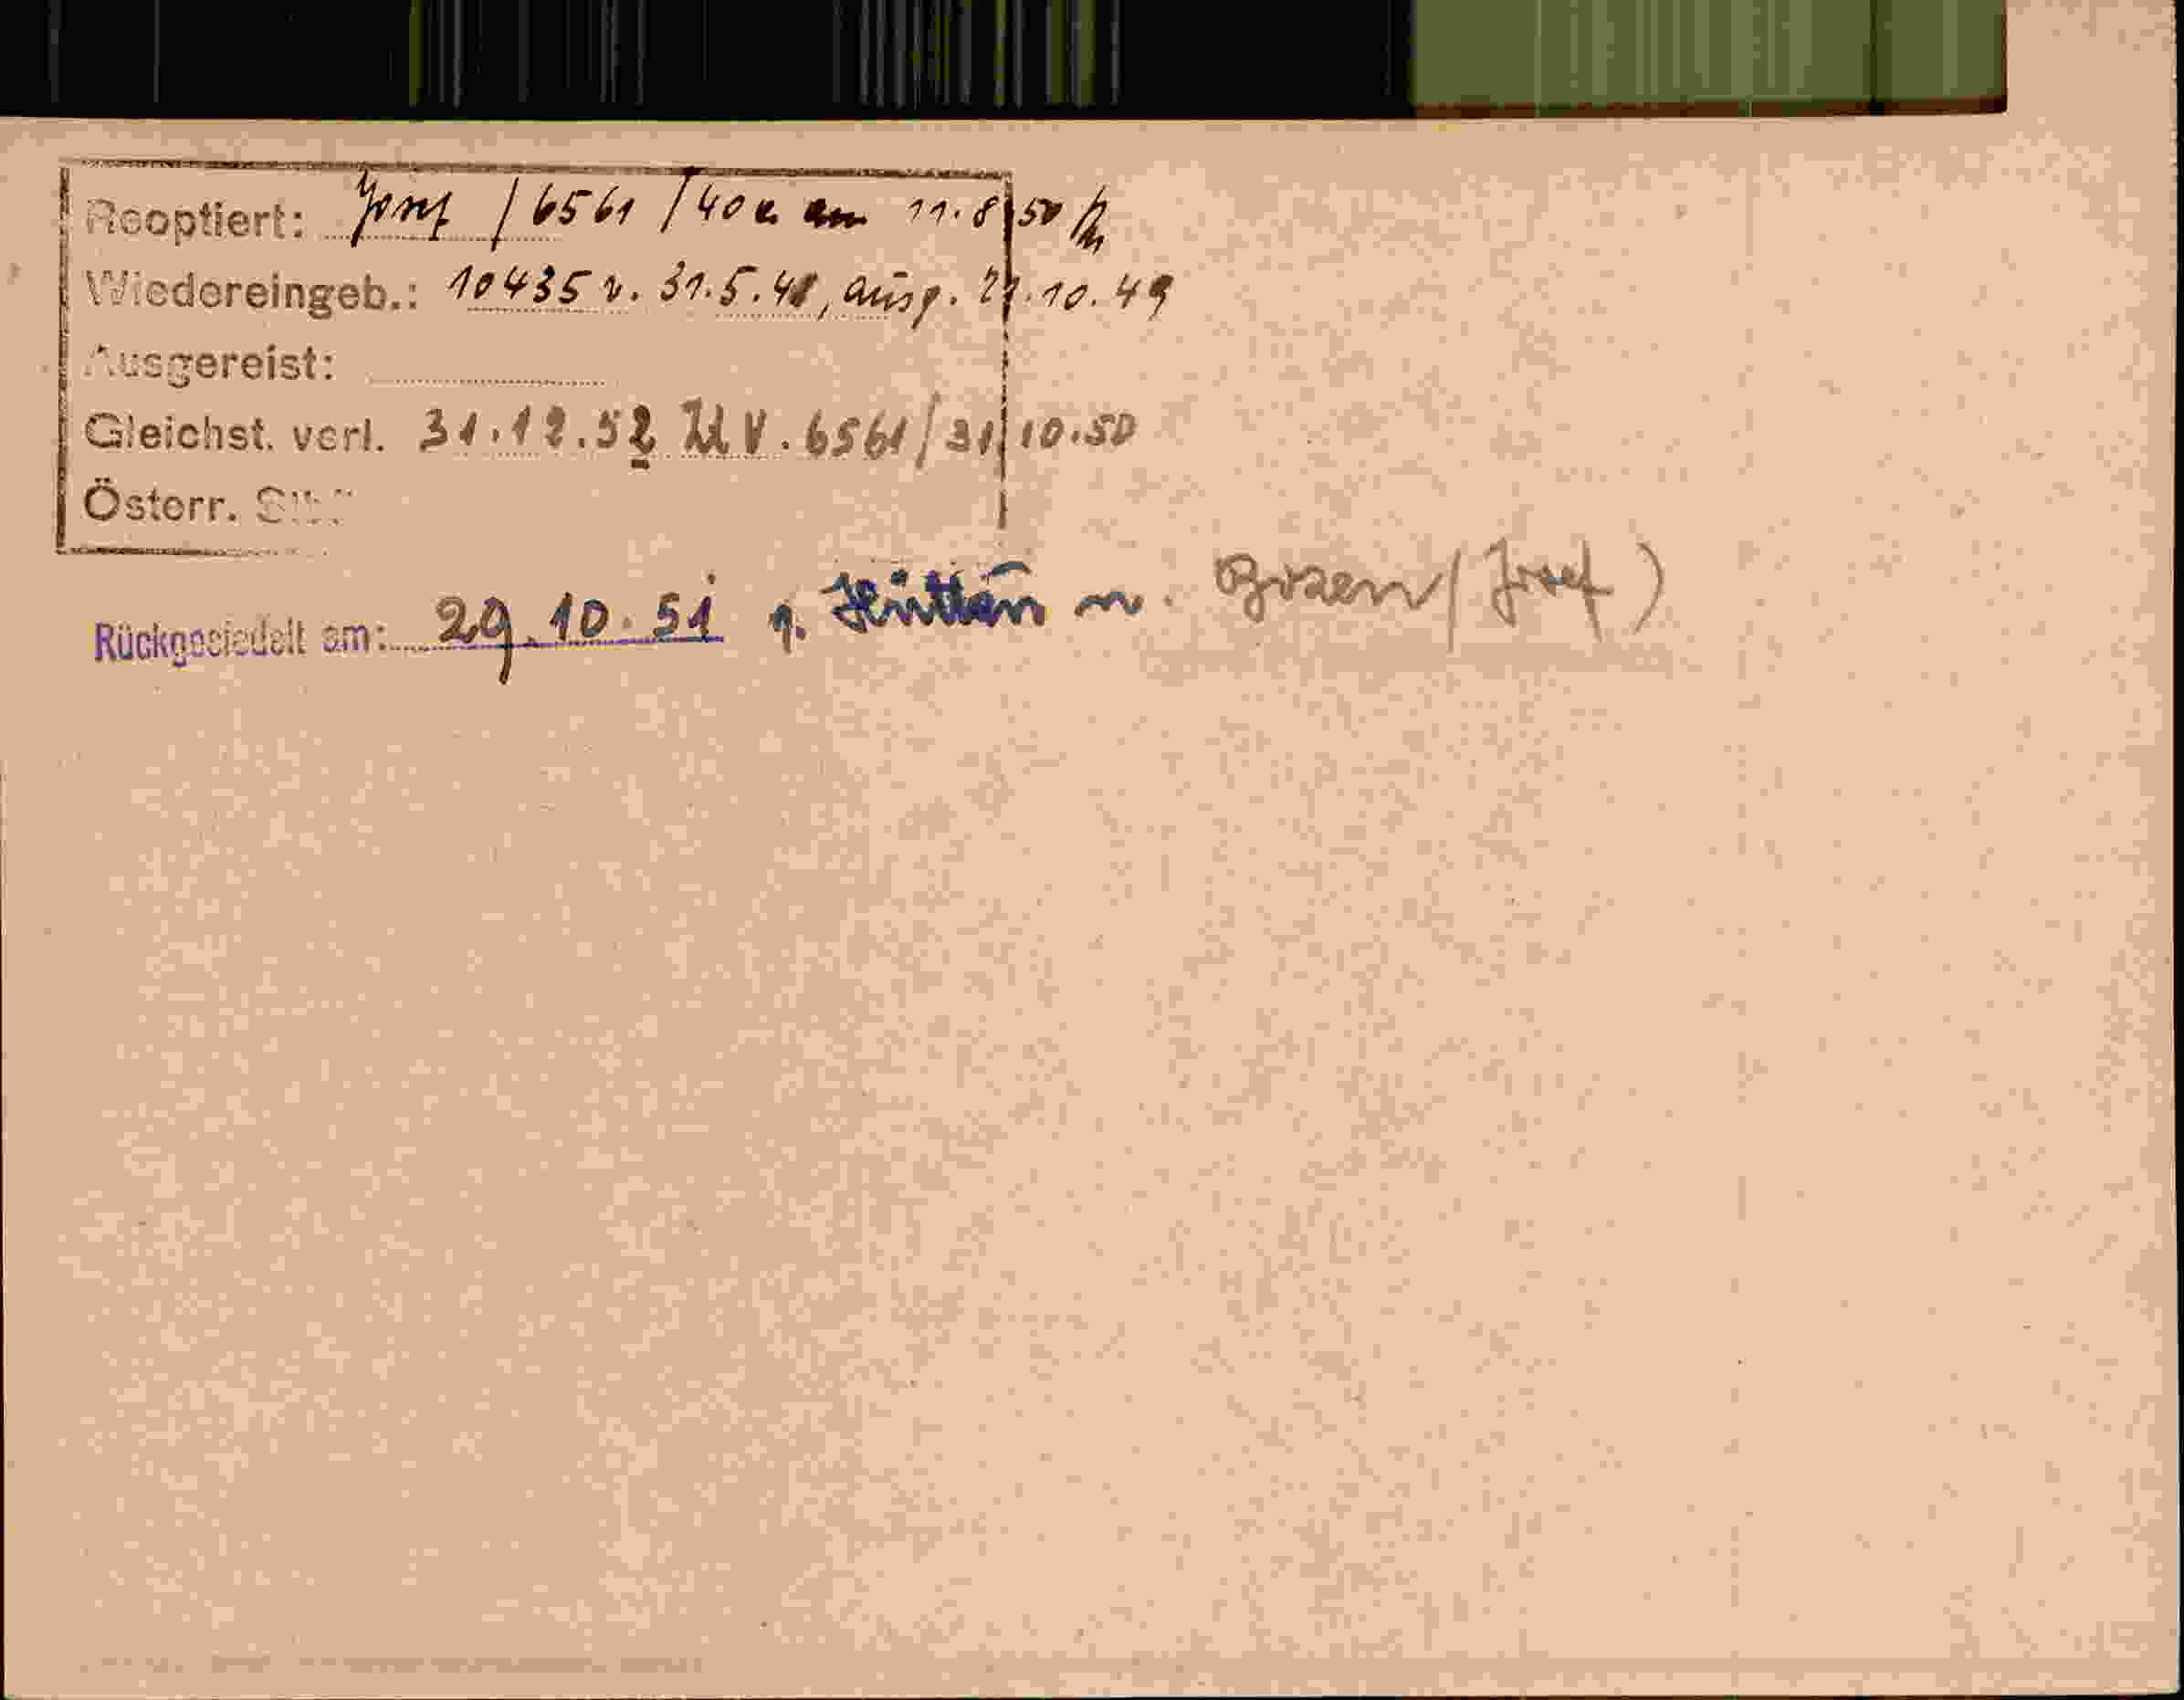 Reoptiert: Josef / 6561 / 40 a am 11.8.50
Wiedereingeb.: 10435 v. 31.5.48, ausg. 27.10.49
Ausgereist:
Gleichst. verl. 31.12.52 V. 6561/31/10.50
Österr.
Rückgesiedelt am: 29.10.51 n. Bozen (Josef)